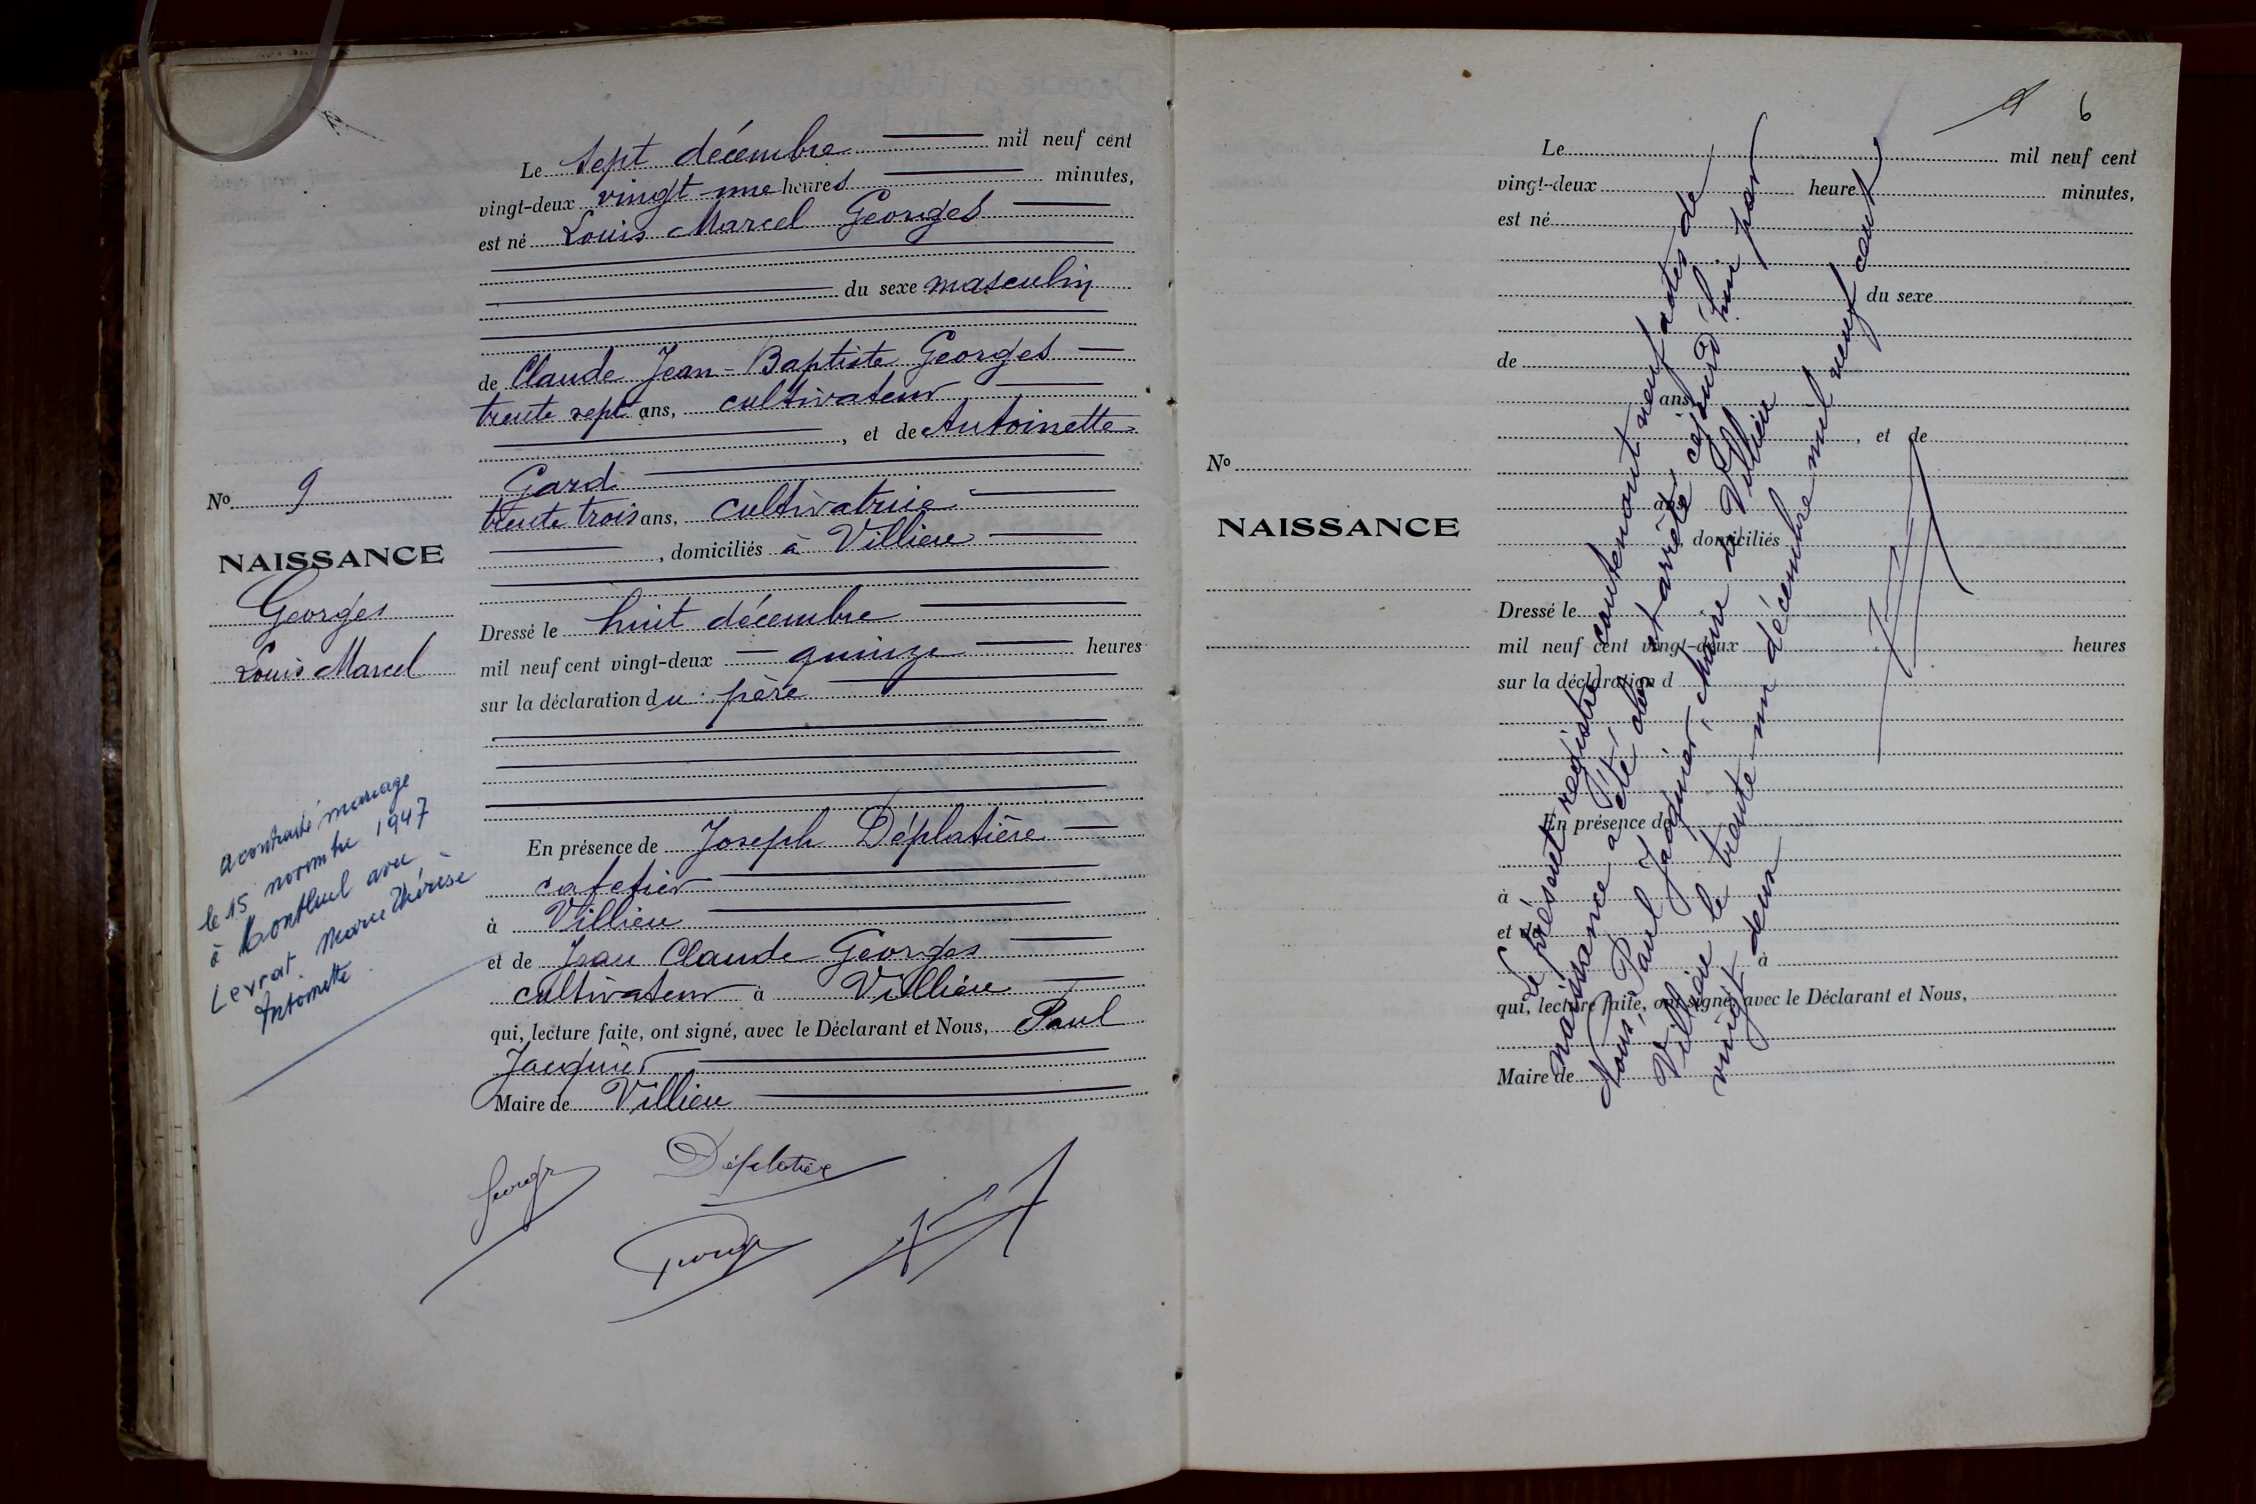 Le sept décembre mil neuf cent
vingt-deux vingt-une heures minutes,
est né Louis Marcel Georges
du sexe masculin
de Claude Jean-Baptiste Georges
trente sept ans, cultivateur
, et de Antoinette
Gard
trente trois ans, cultivatrice
, domiciliés à Villieu
Dressé le huit décembre
mil neuf cent vingt-deux quinze heures
sur la déclaration du père
En présence de Joseph Déplatière
cafetier
à Villieu
et de Jean Claude Georges
cultivateur à Villieu
qui, lecture faite, ont signé, avec le Déclarant et Nous, Paul
Jacquier
Maire de Villieu
No 9
NAISSANCE
Georges
Louis Marcel
a contracté mariage
le 15 novembre 1947
à Montluel avec
Levrat Marie Thérèse
Antoinette
Déplatière
6
Le mil neuf cent
vingt-deux heure minutes,
est né
du sexe
de
ans,
, et de
ans,
, domiciliés
Dressé le
mil neuf cent vingt-deux heures
sur la déclaration d
En présence de
à
et de
à
qui, lecture faite, ont signé, avec le Déclarant et Nous,
Maire de
No
NAISSANCE
Le présent registre contenant neuf actes de
naissance a été clos et arrêté, cejourd'hui par
Nous, Paul Jacquier, Maire de Villieu
Villieu le trente-un décembre mil neuf cent
vingt deux